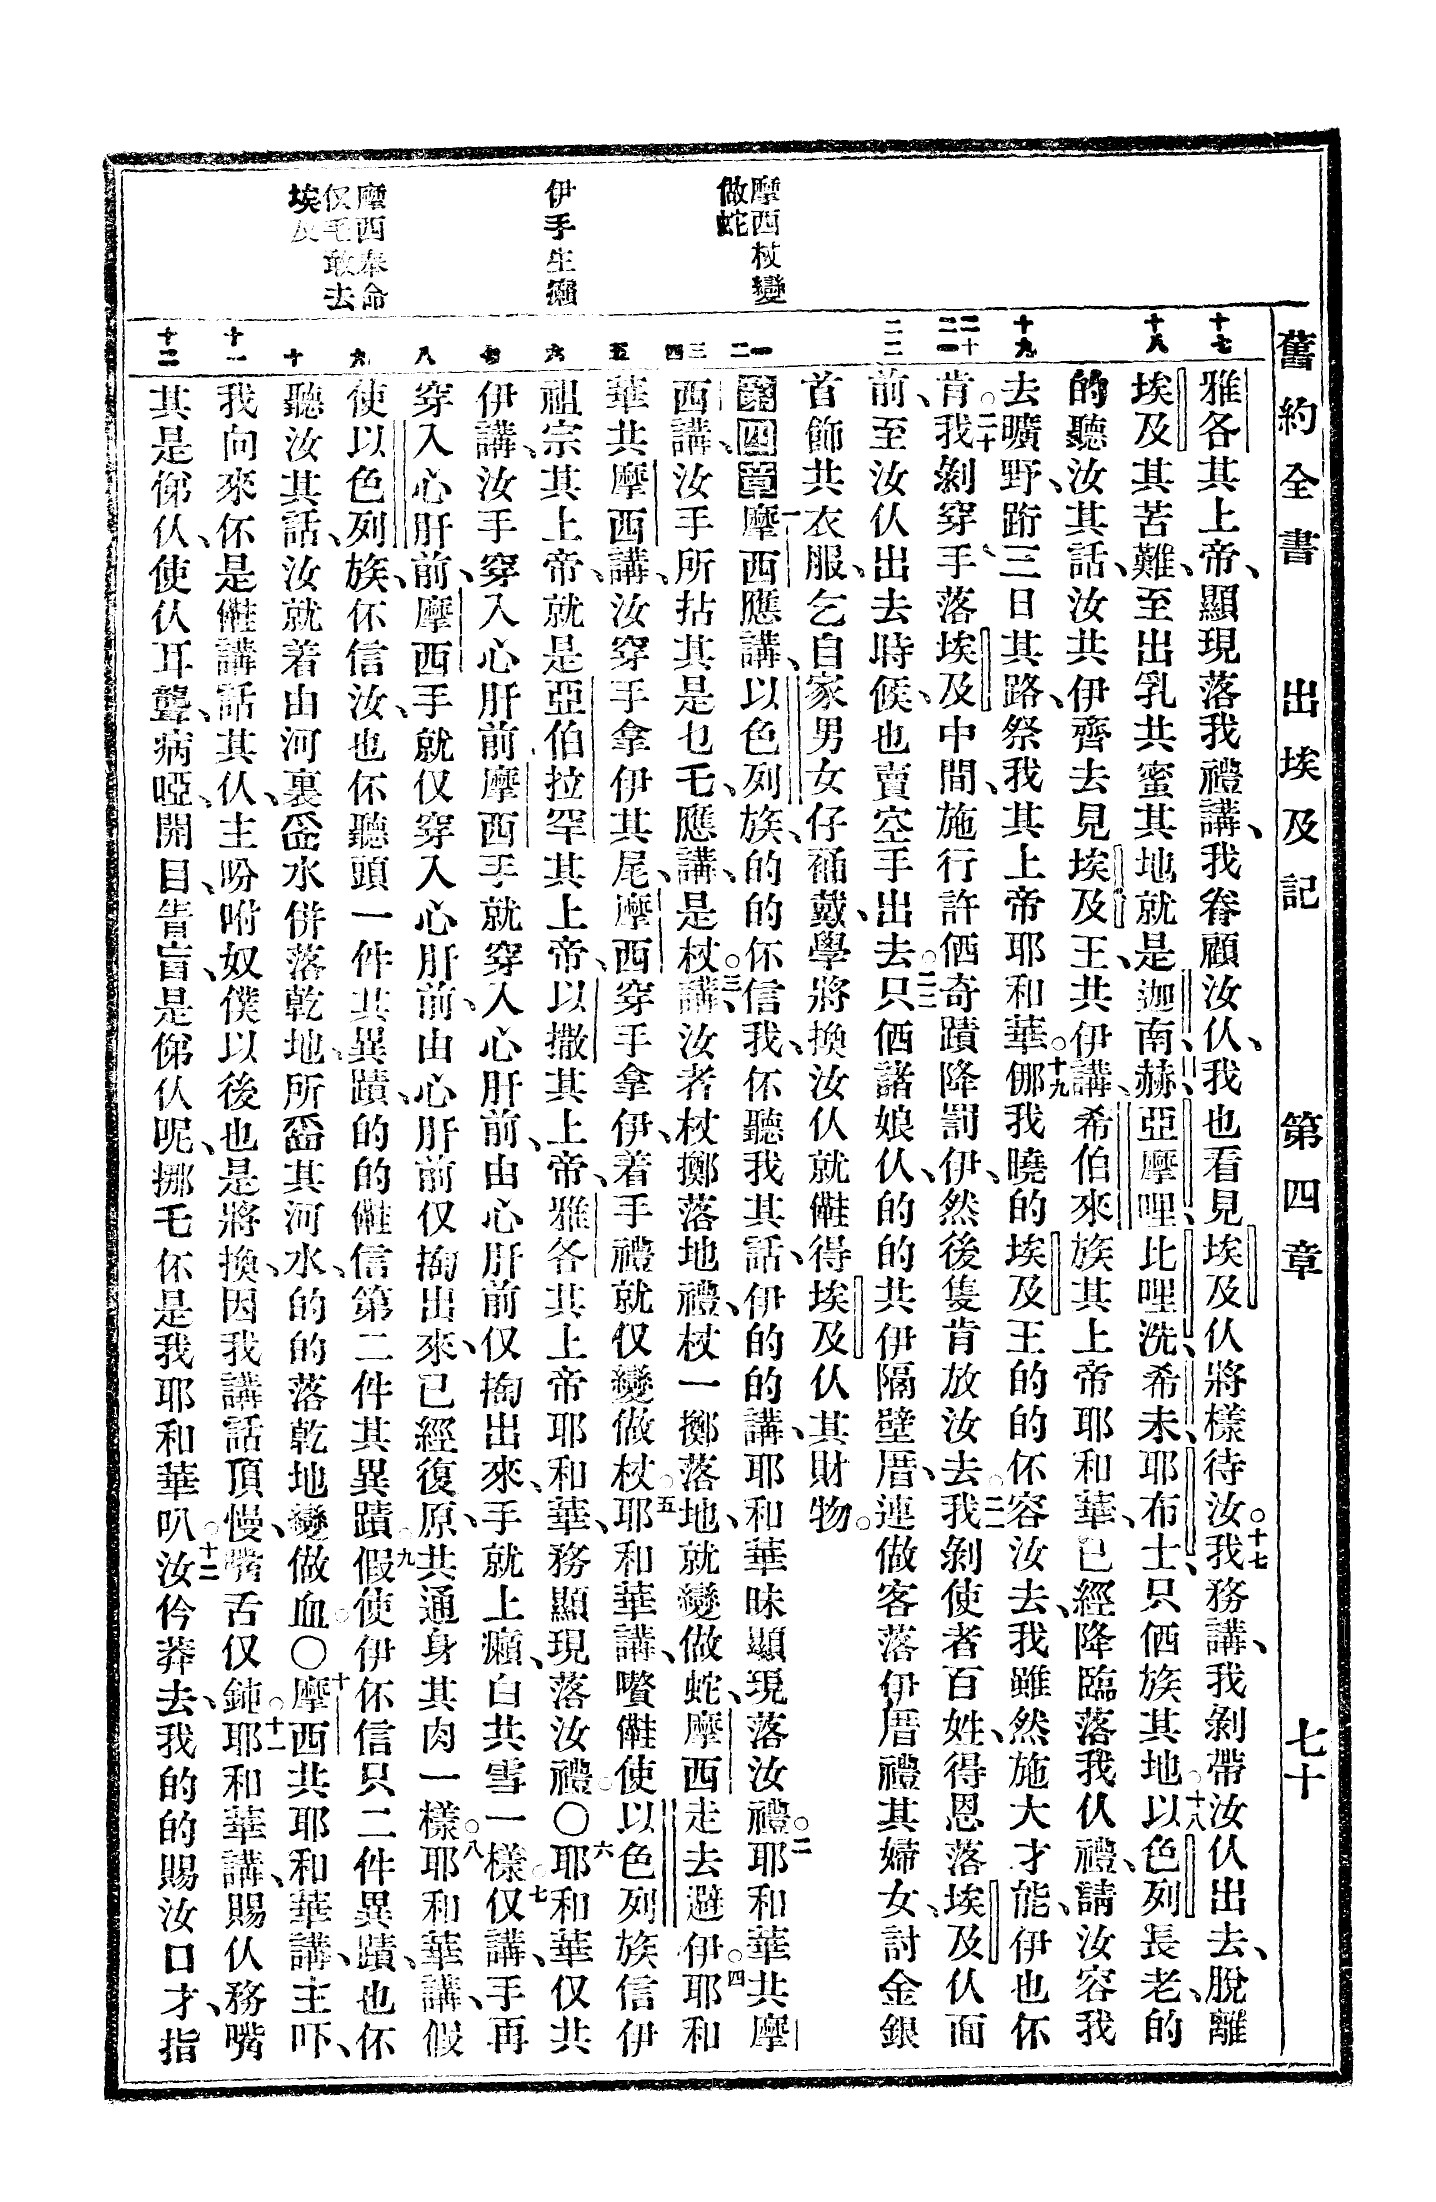 舊約全書　出埃及記　第四章　七十
摩西杖變
做蛇
伊手生癩
摩西奉命
仅毛敢去
埃及
十七
十八
十九
二十
二一
二二
一
二
三
四
五
六
七
八
九
十
十一
十二
雅各其上帝、顯現落我禮講、我眷顧汝仈、我也看見埃及仈將樣待汝。十七我務講、我剝帶汝仈出去、脫離
埃及其苦難、至出乳共蜜其地就是迦南、赫、亞摩哩、比哩洗、希未、耶布士、只伵族其地。十八以色列長老、的
的聽汝其話、汝共伊齊去見埃及王、共伊講、希伯來族其上帝耶和華、已經降臨落我仈禮、請汝容我
去曠野、跨三日其路、祭我其上帝耶和華。十九㑚我曉的埃及王的的伓容汝去、我雖然施大才能、伊也伓
肯。二十我剝穿手落埃及中間、施行許伵奇蹟降罰伊、然後隻肯放汝去。二一我剝使者百姓、得恩落埃及仈面
前、至汝仈出去時候、也賣空手出去。二二只伵諸娘仈、的的共伊隔壁厝、連做客落伊厝禮其婦女、討金銀
首飾共衣服、乞自家男女仔䘄戴、學將換汝仈就㒄得埃及仈其財物。
第四章 一摩西應講、以色列族、的的伓信我、伓聽我其話、伊的的講、耶和華昧顯現落汝禮。二耶和華共摩
西講、汝手所拈其是乜乇、應講、是杖。三講、汝者杖擲落地禮、杖一擲落地、就變做蛇、摩西走去避伊。四耶和
華共摩西講、汝穿手拿伊其尾、摩西穿手拿伊、着手禮就仅變做杖。五耶和華講、嚽㒄使以色列族信伊
祖宗其上帝、就是亞伯拉罕其上帝、以撒其上帝、雅各其上帝耶和華、務顯現落汝禮。〇六耶和華仅共
伊講、汝手穿入心肝前、摩西手就穿入心肝前、由心肝前仅掏出來、手就上癩、白共雪一樣。七仅講、手再
穿入心肝前、摩西手就仅穿入心肝前、由心肝前仅掏出來、已經復原、共通身其肉一樣。八耶和華講、假
使以色列族、伓信汝、也伓聽頭一件其異蹟、的的㒄信第二件其異蹟。九假使伊伓信只二件異蹟、也伓
聽汝其話、汝就着由河裏舀水併落乾地、所舀其河水、的的落乾地變做血。〇十摩西共耶和華講、主吓、
我向來伓是㒄講話其仈、主吩咐奴僕以後也是將換、因我講話頂慢、嘴舌仅鈍。十一耶和華講、賜仈務嘴
其是㑚仈、使仈耳聾、病啞、開目、眚盲、是㑚仈呢、挪乇伓是我耶和華叭。十二汝仱莽去、我的的賜汝口才、指